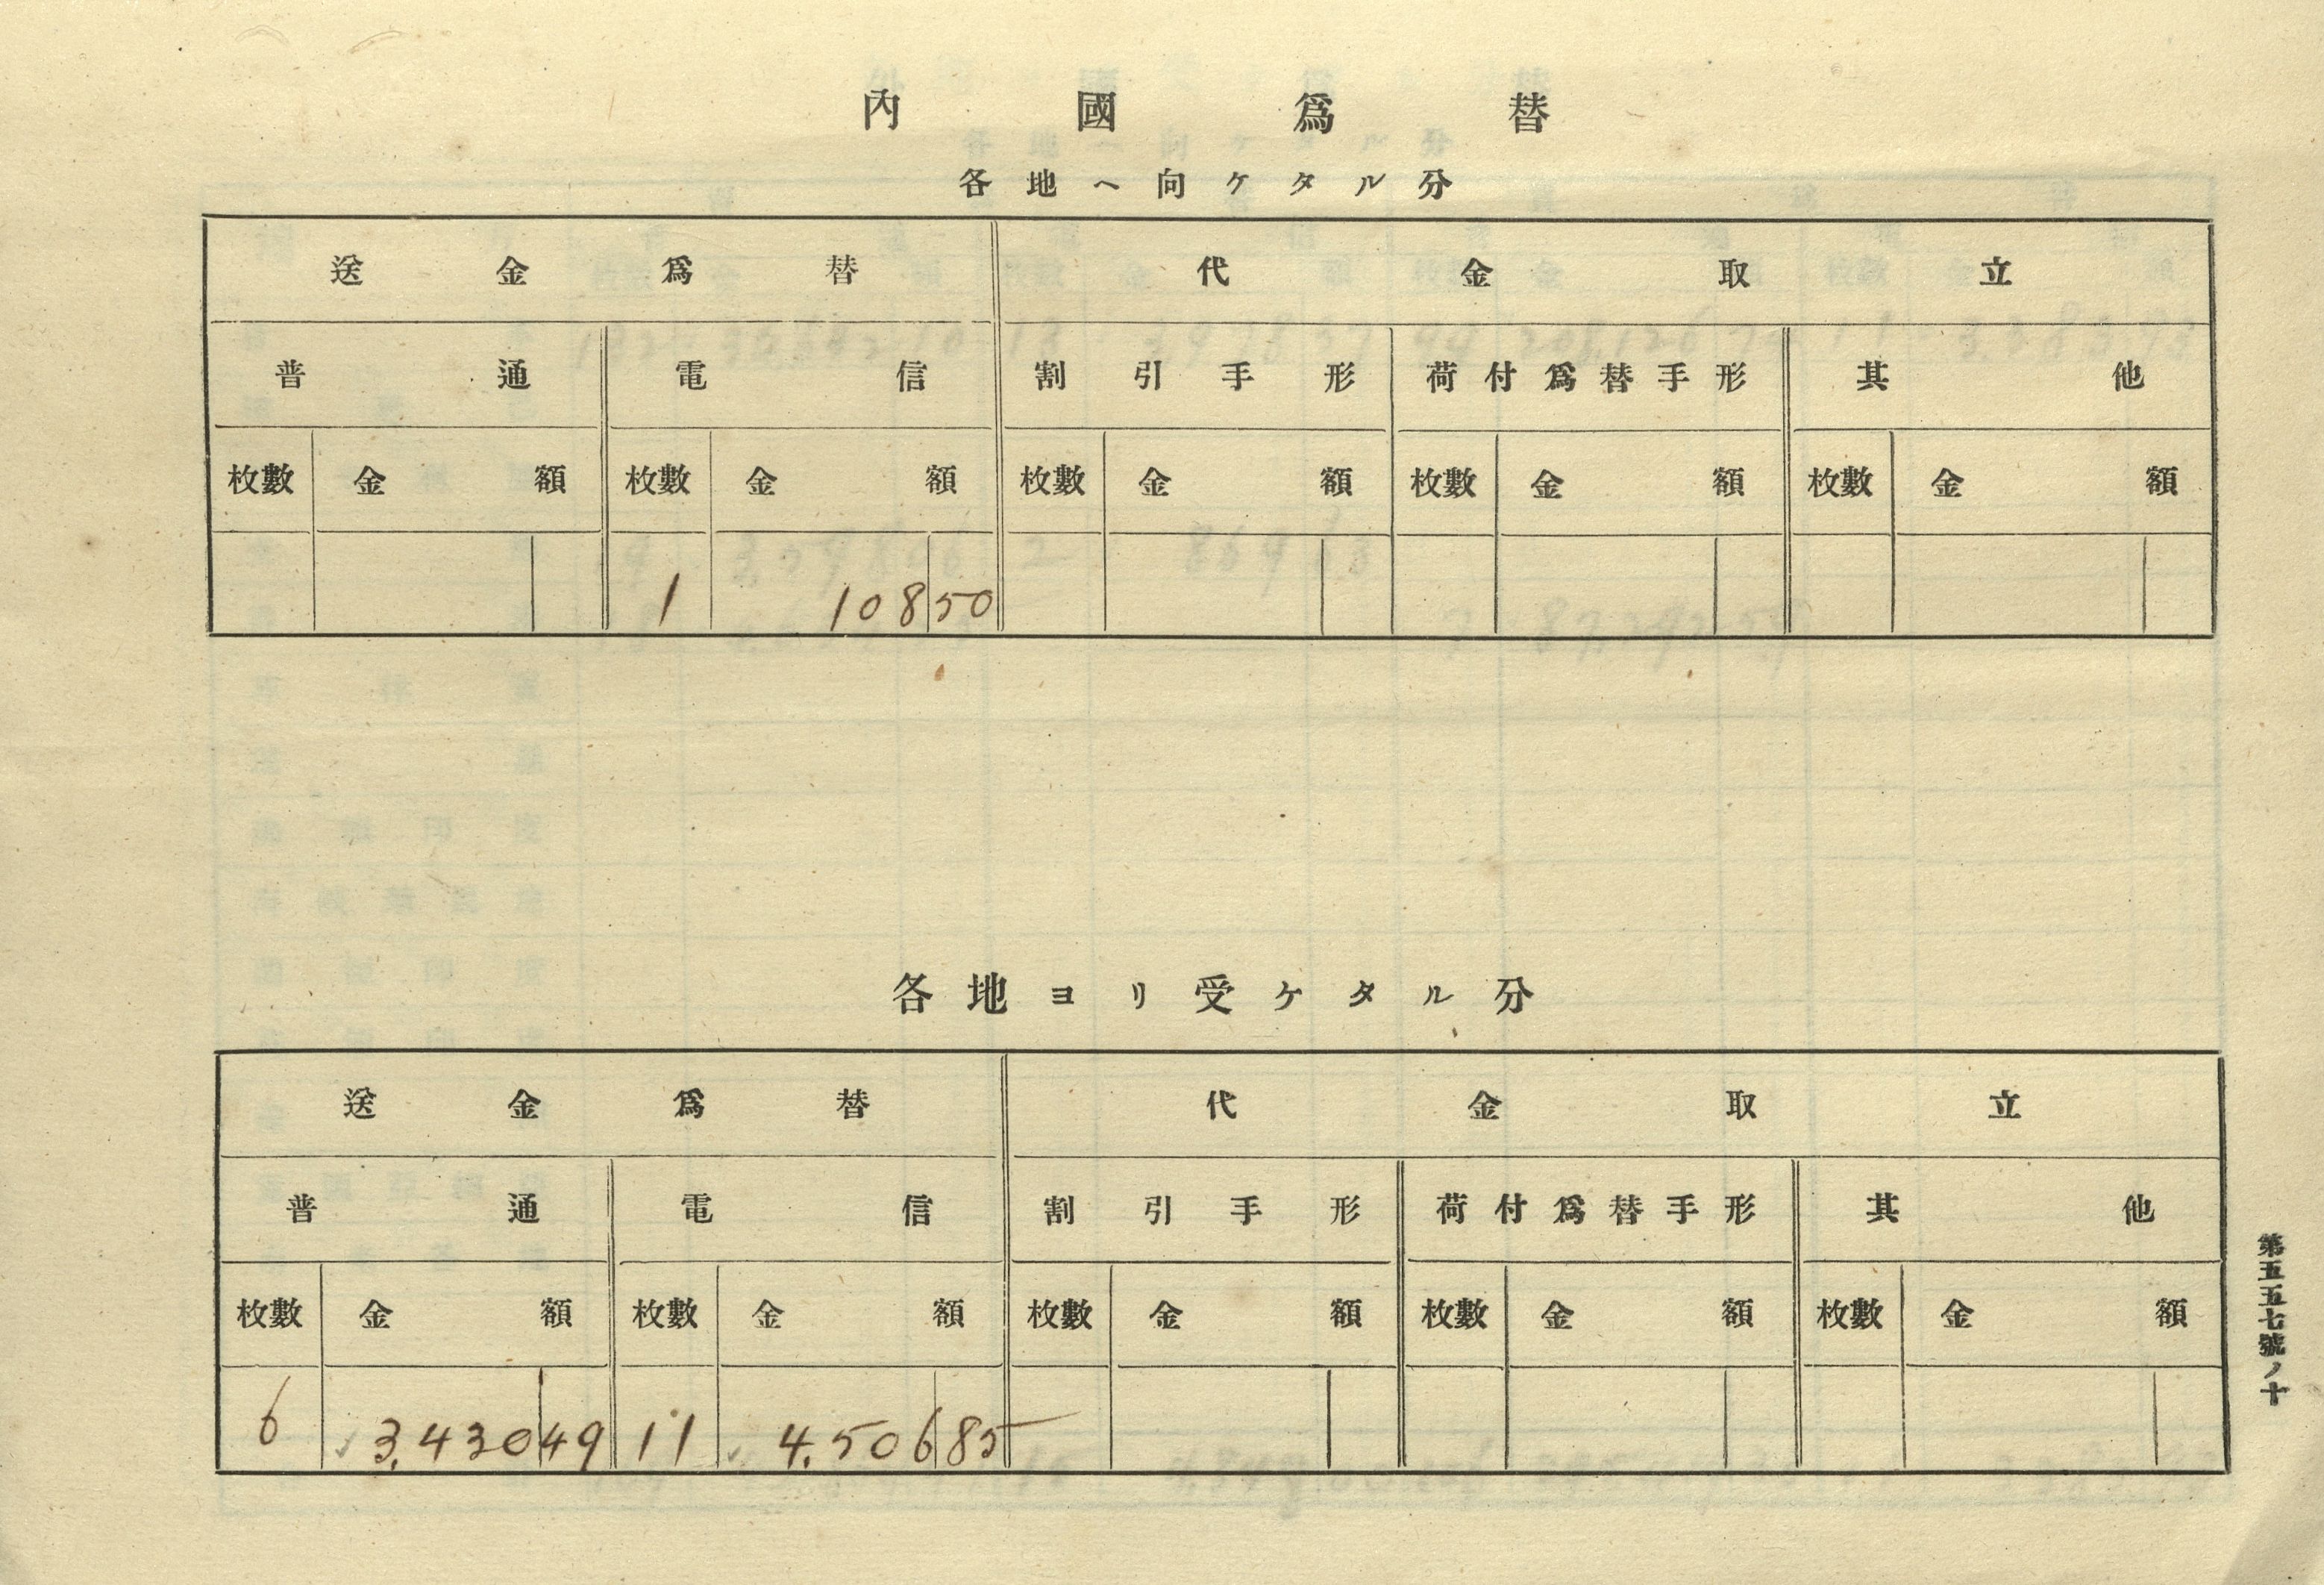 內國爲替
各地ヘ向ケタル分
送金爲替 代金取立
普通 電信 割引手形 荷付爲替手形 其他
枚數 金額 枚數 金額 枚數 金額 枚數 金額 枚數 金額
1 108 50
各地ヨリ受ケタル分
送金爲替 代金取立
普通 電信 割引手形 荷付爲替手形 其他
枚數 金額 枚數 金額 枚數 金額 枚數 金額 枚數 金額
6 3,430 49 11 4,506 85
第五五七號ノ十